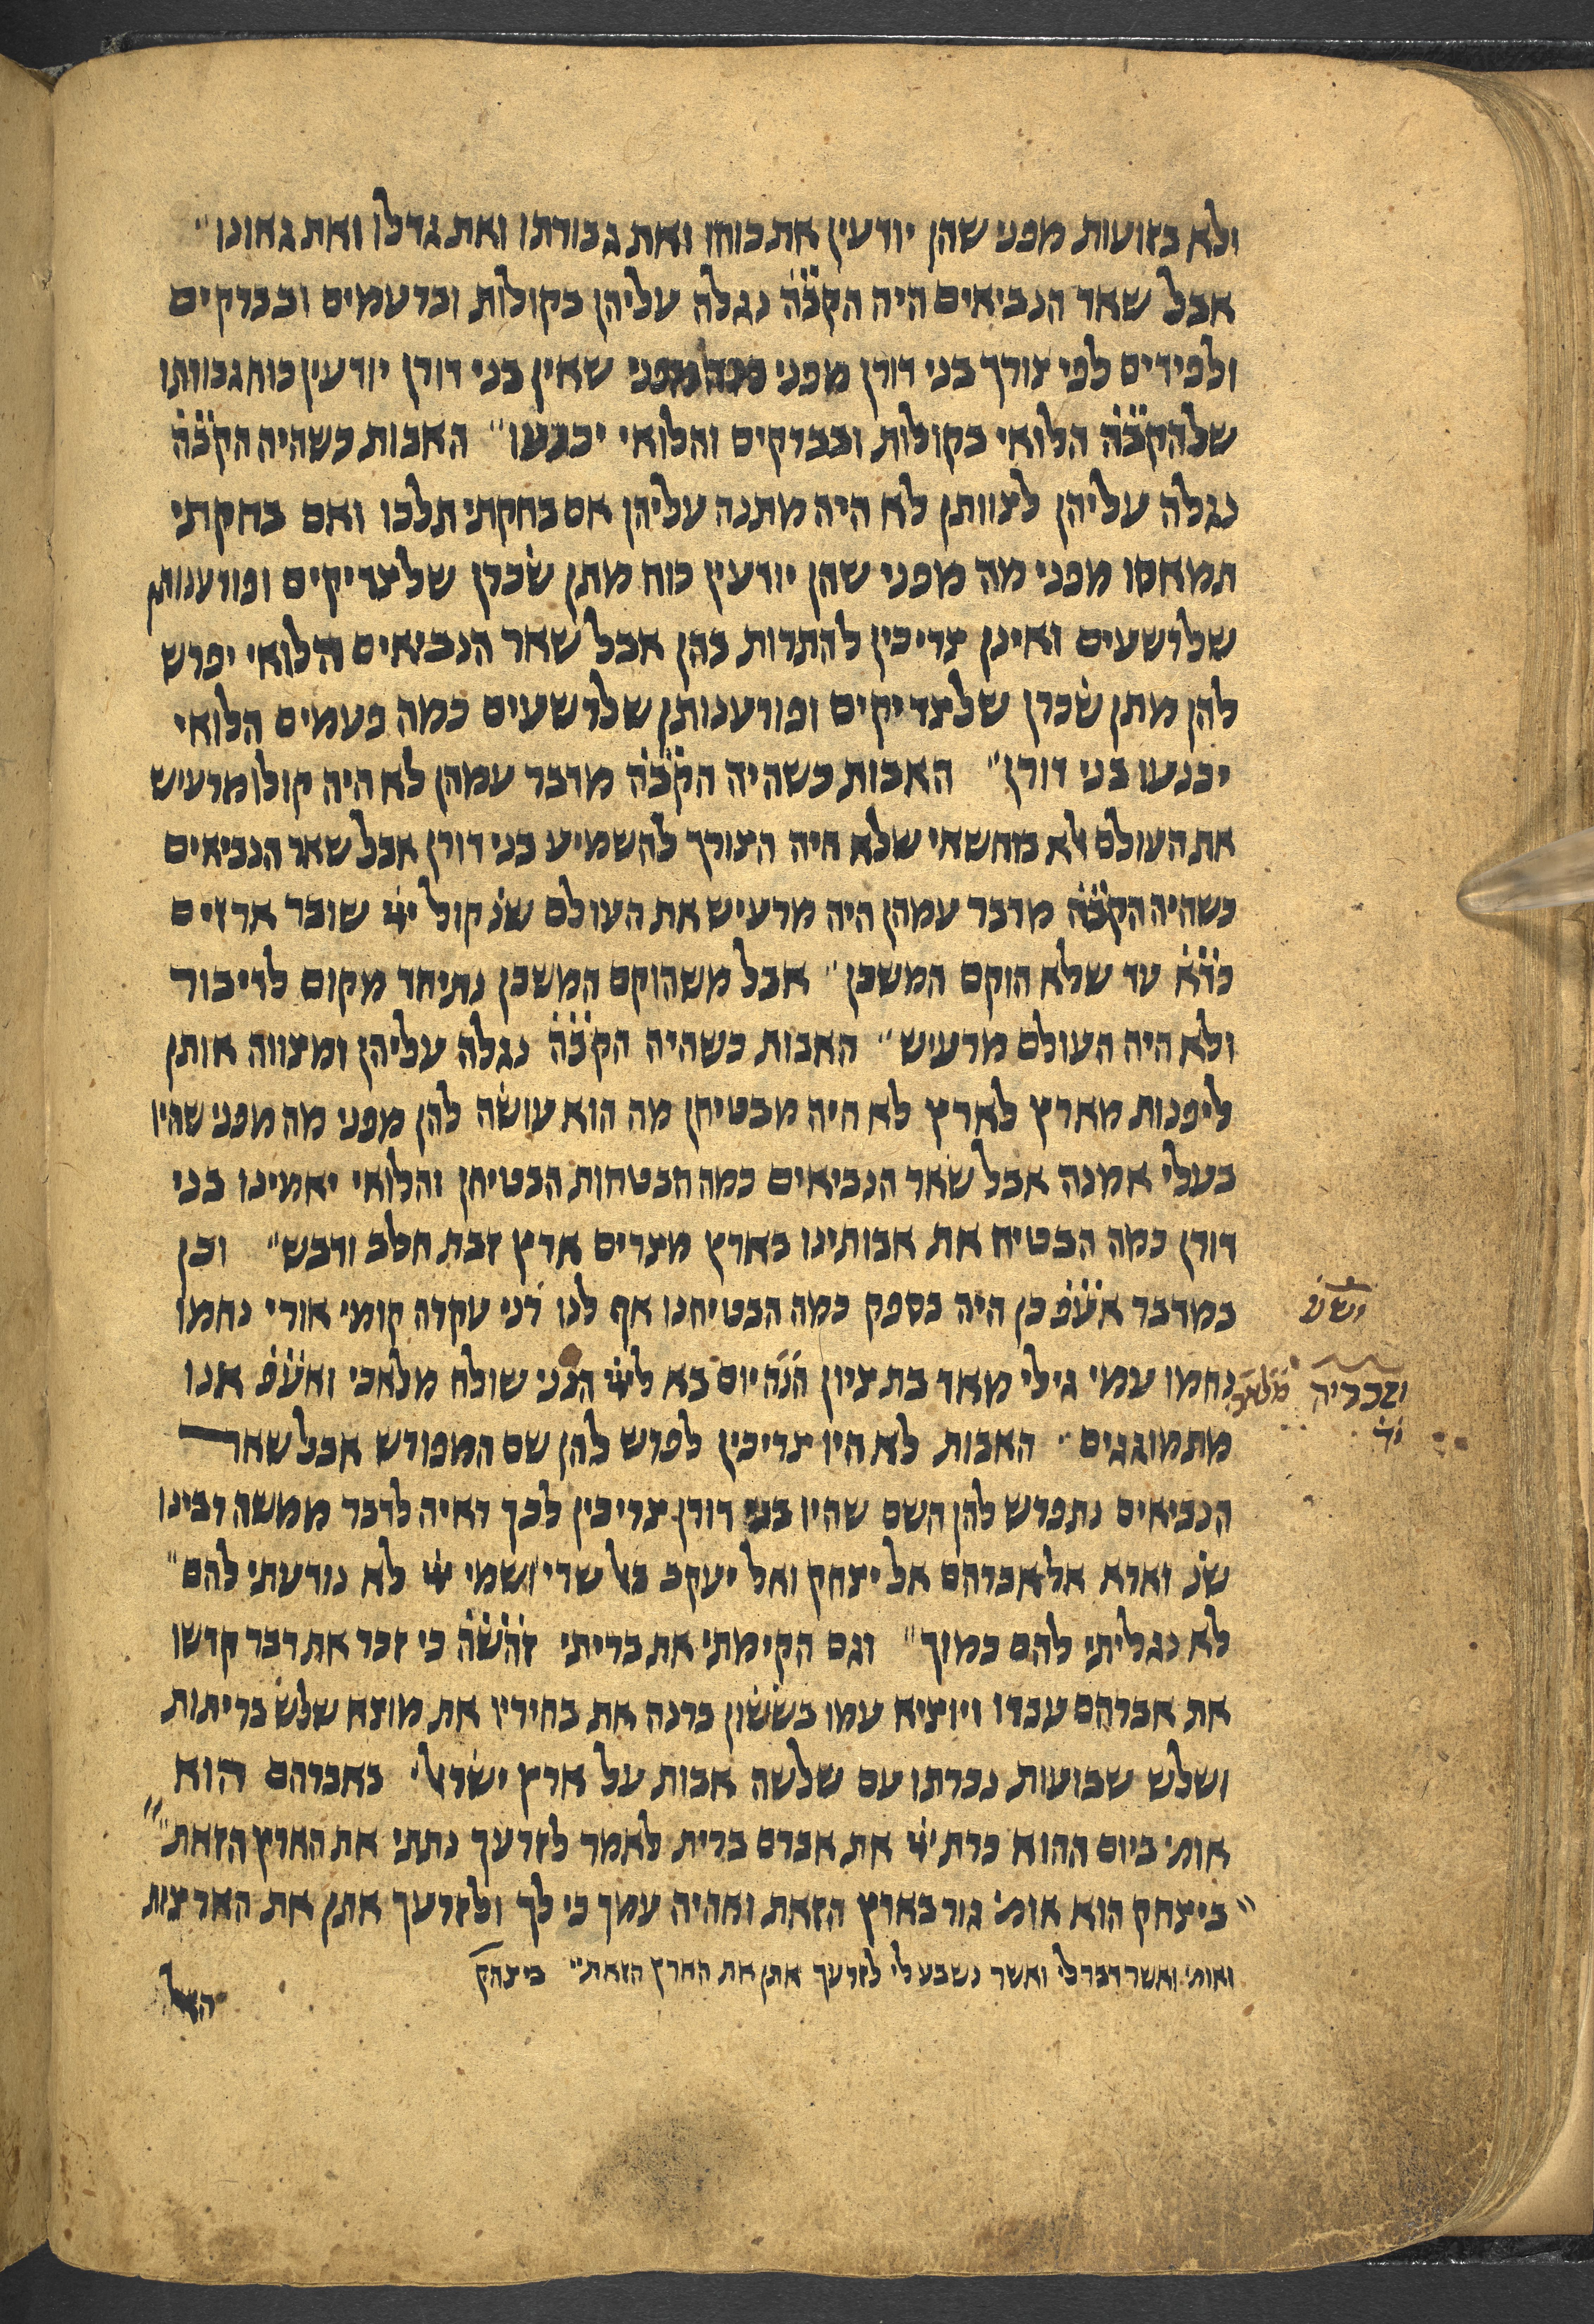 ולא בזועות מפני שהן יודעין את כוחו ואת גבורתו ואת גדלו ואת גאונו״
אבל שאר הנביאים היה הקבה נגלה עליהן בקולות וברעמים ובברקים
ולפידים לפי צורך בני דורן מפני שאין בני דורן יודעין כוח גבורתו
שלהקבה הלואי בקולות ובברקים והלואי יכנעו״ האבות כשהיה הקבה
נגלה עליהן לצוותן לא היה מתנה עליהן אם בחקתי תלכו ואם בחקתי
תמאסו מפני מה מפני שהן יודעין כוח מתן שכרן שלצדיקים ופורענותן
שלרשעים ואינן צריכין להתרות בהן אבל שאר הנביאים הלואי יפרש
להן מתן שכרן שלצדיקים ופורענותן שלרשעים כמה פעמים הלואי
יכנעו בני דורן״ האבות כשהיה הקבה מדבר עמהן לא היה קולו מרעיש
את העולם לא מחשאי שלא היה הצורך להשמיע בני דורן אבל שאר הנביאים
כשהיה הקבה מדבר עמהן היה מרעיש את העולם שנ קול יי שובר ארזים
כדא עד שלא הוקם המשכן״ אבל משהוקם המשכן נתיחד מקום לדיבור
ולא היה העולם מרעיש״ האבות כשהיה הקבה נגלה עליהן ומצווה אותן
ליפנות מארץ לארץ לא היה מבטיחן מה הוא עושה להן מפני מה מפני שהיו
בעלי אמנה אבל שאר הנביאים כמה הבטחות הבטיחן והלואי יאמינו בני
דורן כמה הבטיח את אבותינו בארץ מצרים ארץ זבת חלב ודבש״ וכן
במדבר אעפ כן היה בספק כמה הבטיחנו אף לנו רני עקרה קומי אורי נחמו
ישע
נחמו עמי גילי מאד בת ציון הנה יום בא ליי הנני שולח מלאכי ואעפ אנו
וזכריה מלאכי
יד
מתמוגגים״ האבות לא היו צריכין לפרש להן שם המפורש אבל שאר
הנביאים נתפרש להן השם שהיו בני דורן צריכין לכך ראיה לדבר ממשה רבינו
שנ וארא אל אברהם אל יצחק ואל יעקב באל שדי ושמי יי לא נודעתי להם״
לא נגליתי להם כמוך״ וגם הקימתי את בריתי זהשה כי זכר את דבר קדשו
את אברהם עבדו ויוציא עמו בששון ברנה את בחיריו את מוצא שלש בריתות
ושלש שבועות נכרתו עם שלשה אבות על ארץ ישראל׳ באברהם הוא
אומ׳ ביום ההוא כרת יי את אברם ברית לאמר לזרעך נתתי את הארץ הזאת״
״ביצחק הוא אומ׳ גור בארץ הזאת ואהיה עמך כי לך ולזרעך אתן את הארצות
ואומ׳ ואשר דבר לי ואשר נשבע לי לזרעך אתן את הארץ הזאת״ ביצחק
האל